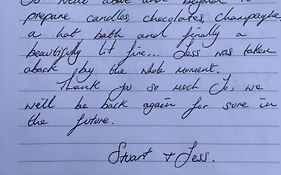 prepare candles, chocolates, champagne,
a hot bath and finally a
beautifully lit fire... Jess was taken
aback by the whole moment.
Thank you so much Jo, we
will be back again for sure in
the future.
Stuart + Jess.